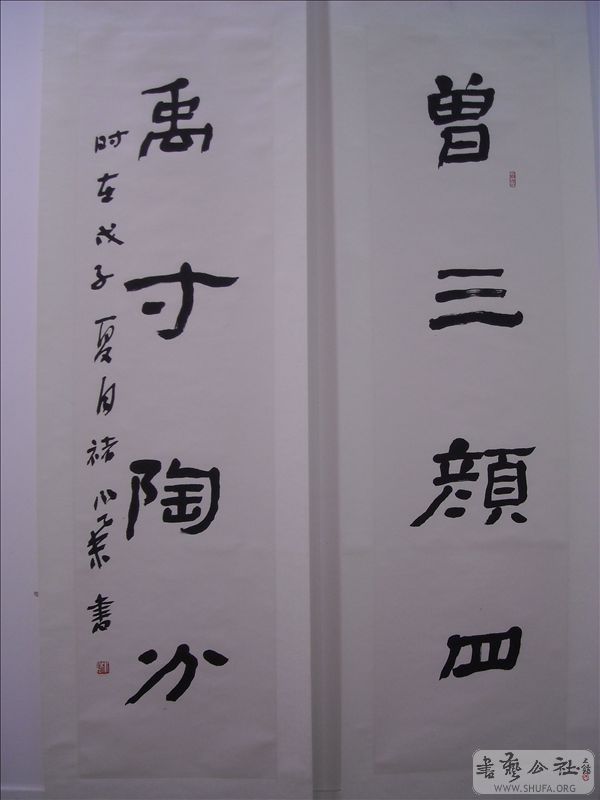 曾三顏四
禹寸陶分
时在戊子夏日禇
書
書藝公社
WWW.SHUFA.ORG